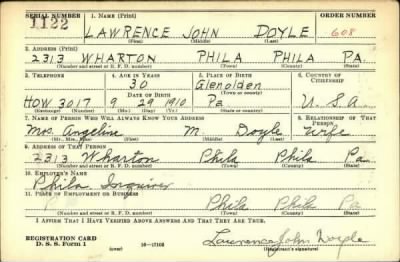 SERIAL NUMBER 1. NAME (Print) ORDER NUMBER
1122 LAWRENCE JOHN DOYLE 608
(First) (Middle) (Last)
2. ADDRESS (Print)
2313 WHARTON PHILA PHILA PA.
(Number and street or R. F. D. number) (Town) (County) (State)
3. TELEPHONE 4. AGE IN YEARS 5. PLACE OF BIRTH 6. COUNTRY OF CITIZENSHIP
30 Glenolden
DATE OF BIRTH (Town or county)
HOW 3017 9 29 1910 Pa U. S. A.
(Exchange) (Number) (Mo.) (Day) (Yr.) (State or country)
7. NAME OF PERSON WHO WILL ALWAYS KNOW YOUR ADDRESS 8. RELATIONSHIP OF THAT PERSON
Mrs. Angeline M. Doyle Wife
(Mr., Mrs., Miss) (First) (Middle) (Last)
9. ADDRESS OF THAT PERSON
2313 Wharton Phila Phila Pa.
(Number and street or R. F. D. number) (Town) (County) (State)
10. EMPLOYER'S NAME
Phila Inquirer
11. PLACE OF EMPLOYMENT OR BUSINESS
Phila Phila Pa.
(Number and street or R. F. D. number) (Town) (County) (State)
I AFFIRM THAT I HAVE VERIFIED ABOVE ANSWERS AND THAT THEY ARE TRUE.
REGISTRATION CARD
D. S. S. Form 1 (over) 16-17105 Lawrence John Doyle
(Registrant's signature)